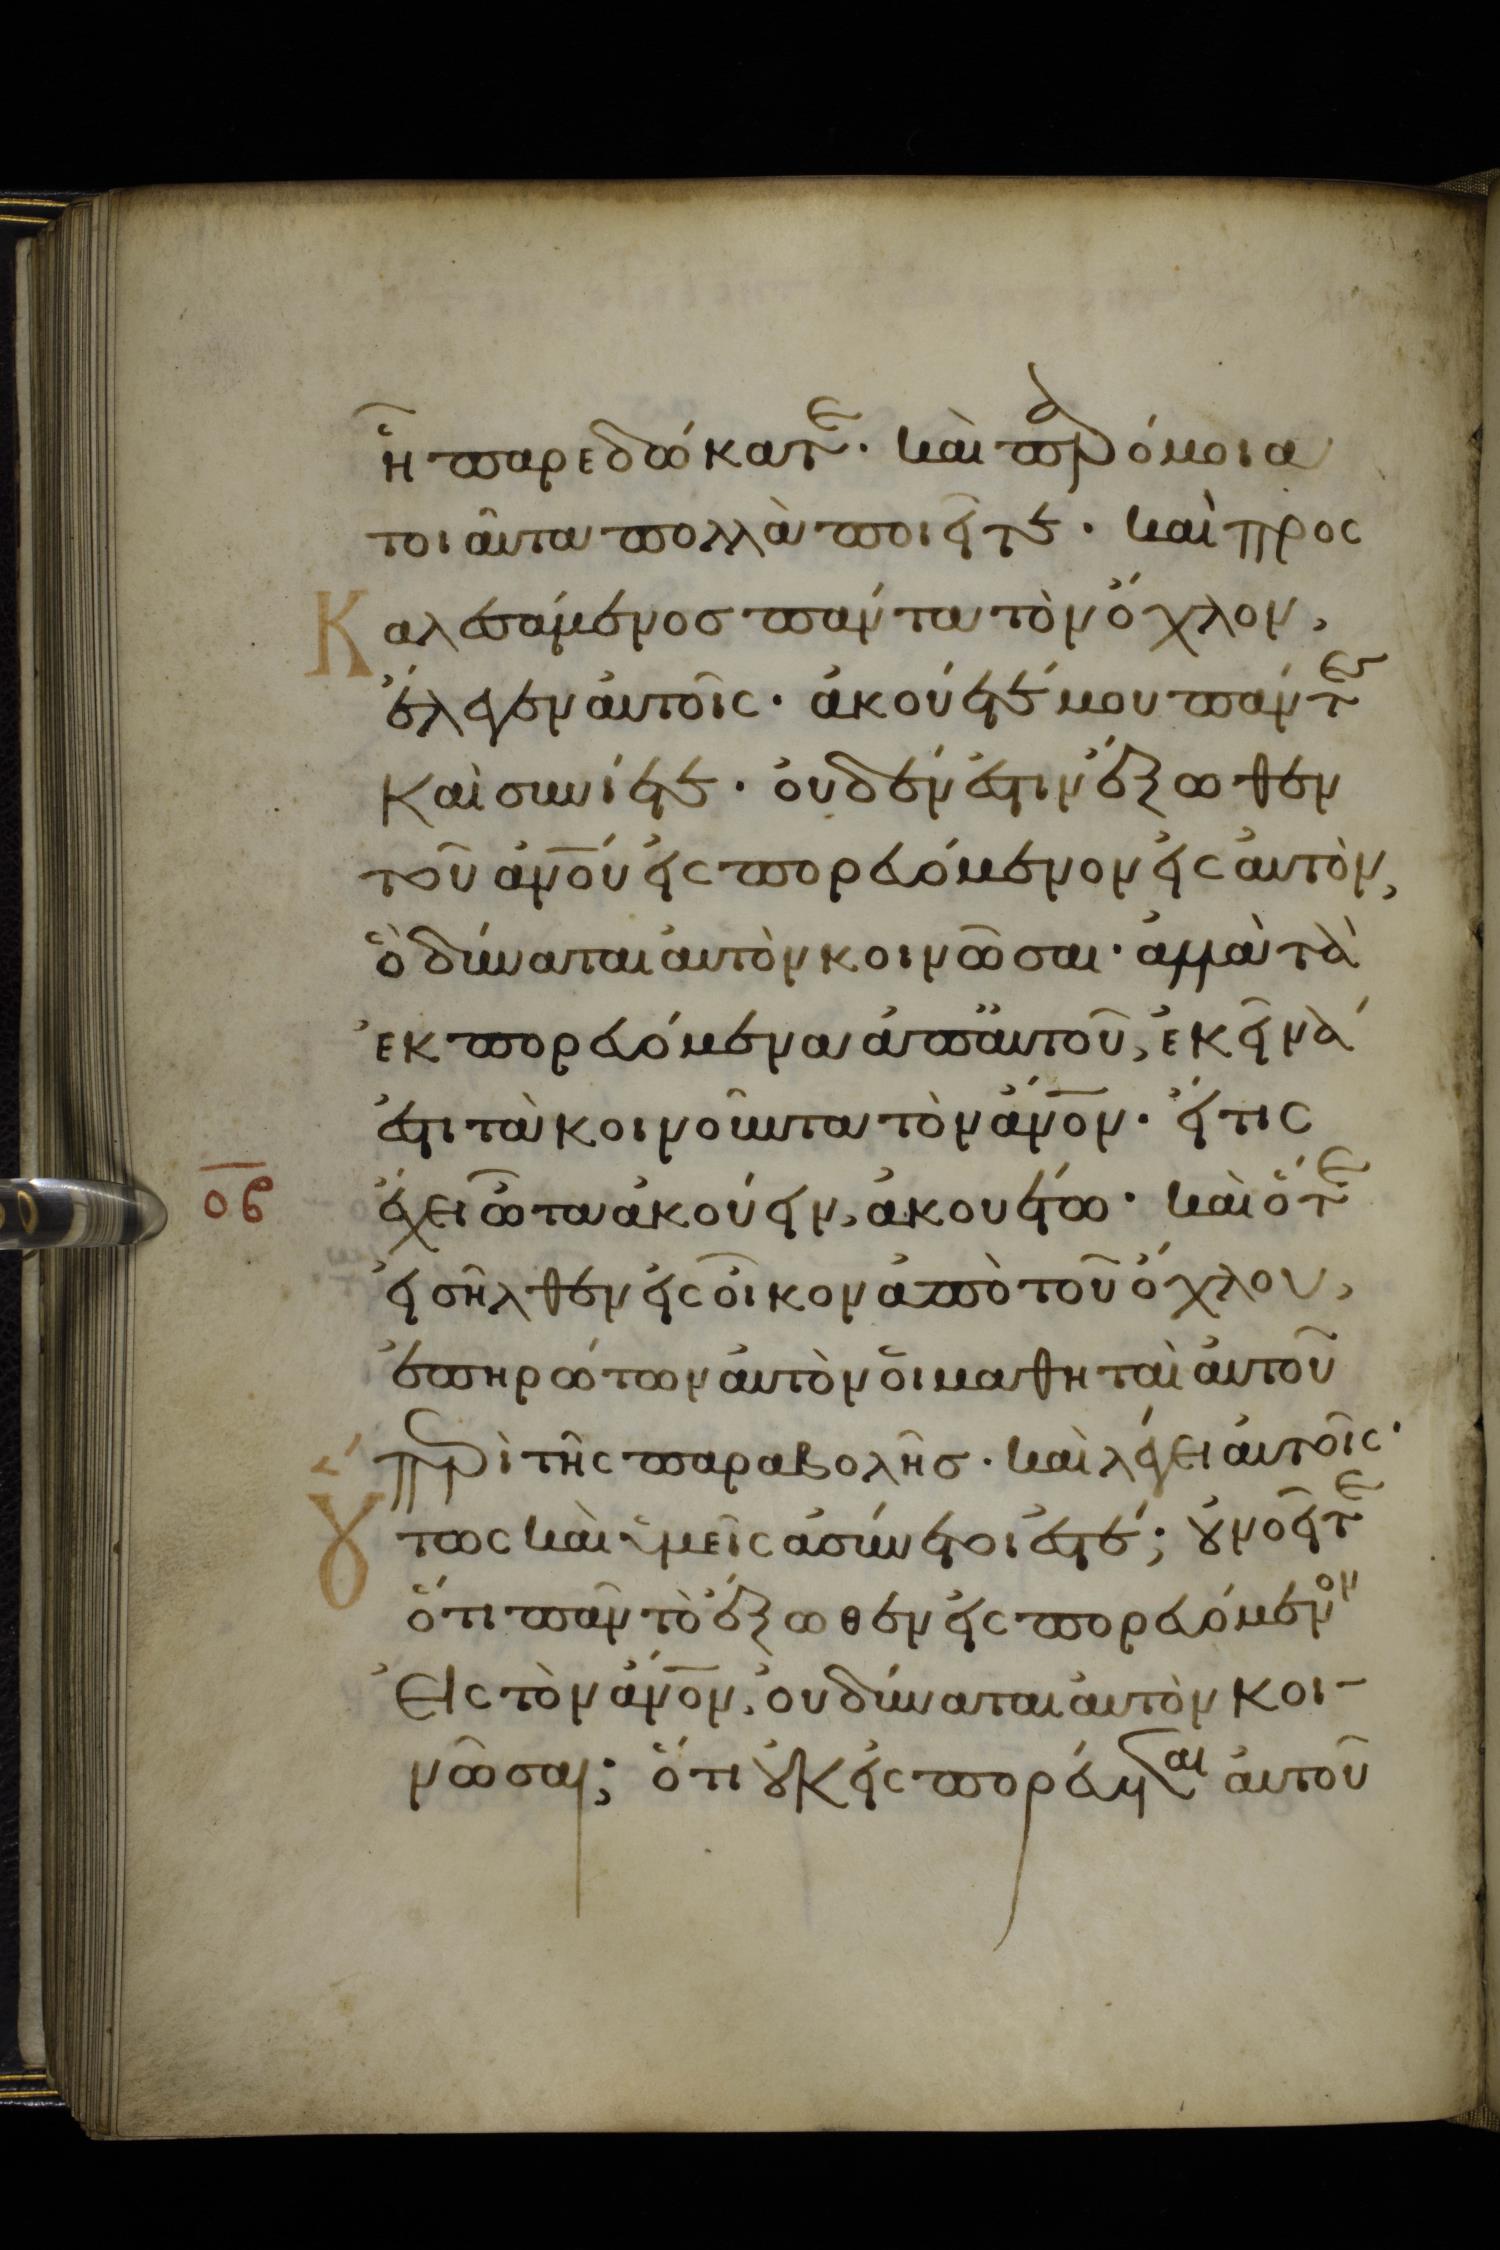 ἧ παρεδώκατε. καὶ παρόμοια
τοιαῦτα πολλὰ ποιεῖτε. καὶ προς
Καλεσάμενος πάντα τὸν ὄχλον,
ἔλεγεν αὐτοῖς. ἀκούετέ μου πάντες
καὶ συνίετε. οὐδέν ἐστιν ἔξωθεν
τοῦ ἀνου εἰσπορευόμενον εἰς αὐτὸν,
ὃ δύναται αὐτὸν κοινῶσαι. ἀλλὰ τὰ
ἐκπορευόμενα ἀπ' αὐτοῦ, ἐκεῖνά
ἐστι τὰ κοινοῦντα τὸν ἄνον. εἴ τις
οβ
ἔχει ὦτα ἀκούειν, ἀκουέτω. καὶ ὅτε
εἰσῆλθεν εἰς οἶκον ἀπὸ τοῦ ὄχλου,
ἐπηρώτων αὐτὸν οἱ μαθηταὶ αὐτοῦ
περὶ τῆς παραβολῆς. καὶ λέγει αὐτοῖς.
Ȣτως καὶ ὑμεῖς ἀσύνετοι ἐστέ; ȣ νοεῖτε
ὅτι πᾶν τὸ ἔξωθεν εἰσπορευόμενον
εἰς τὸν ἄνον, οὐ δύναται αὐτὸν κοι-
νῶσαι; ὅτι ȣκ εἰσπορεύεται αὐτοῦ